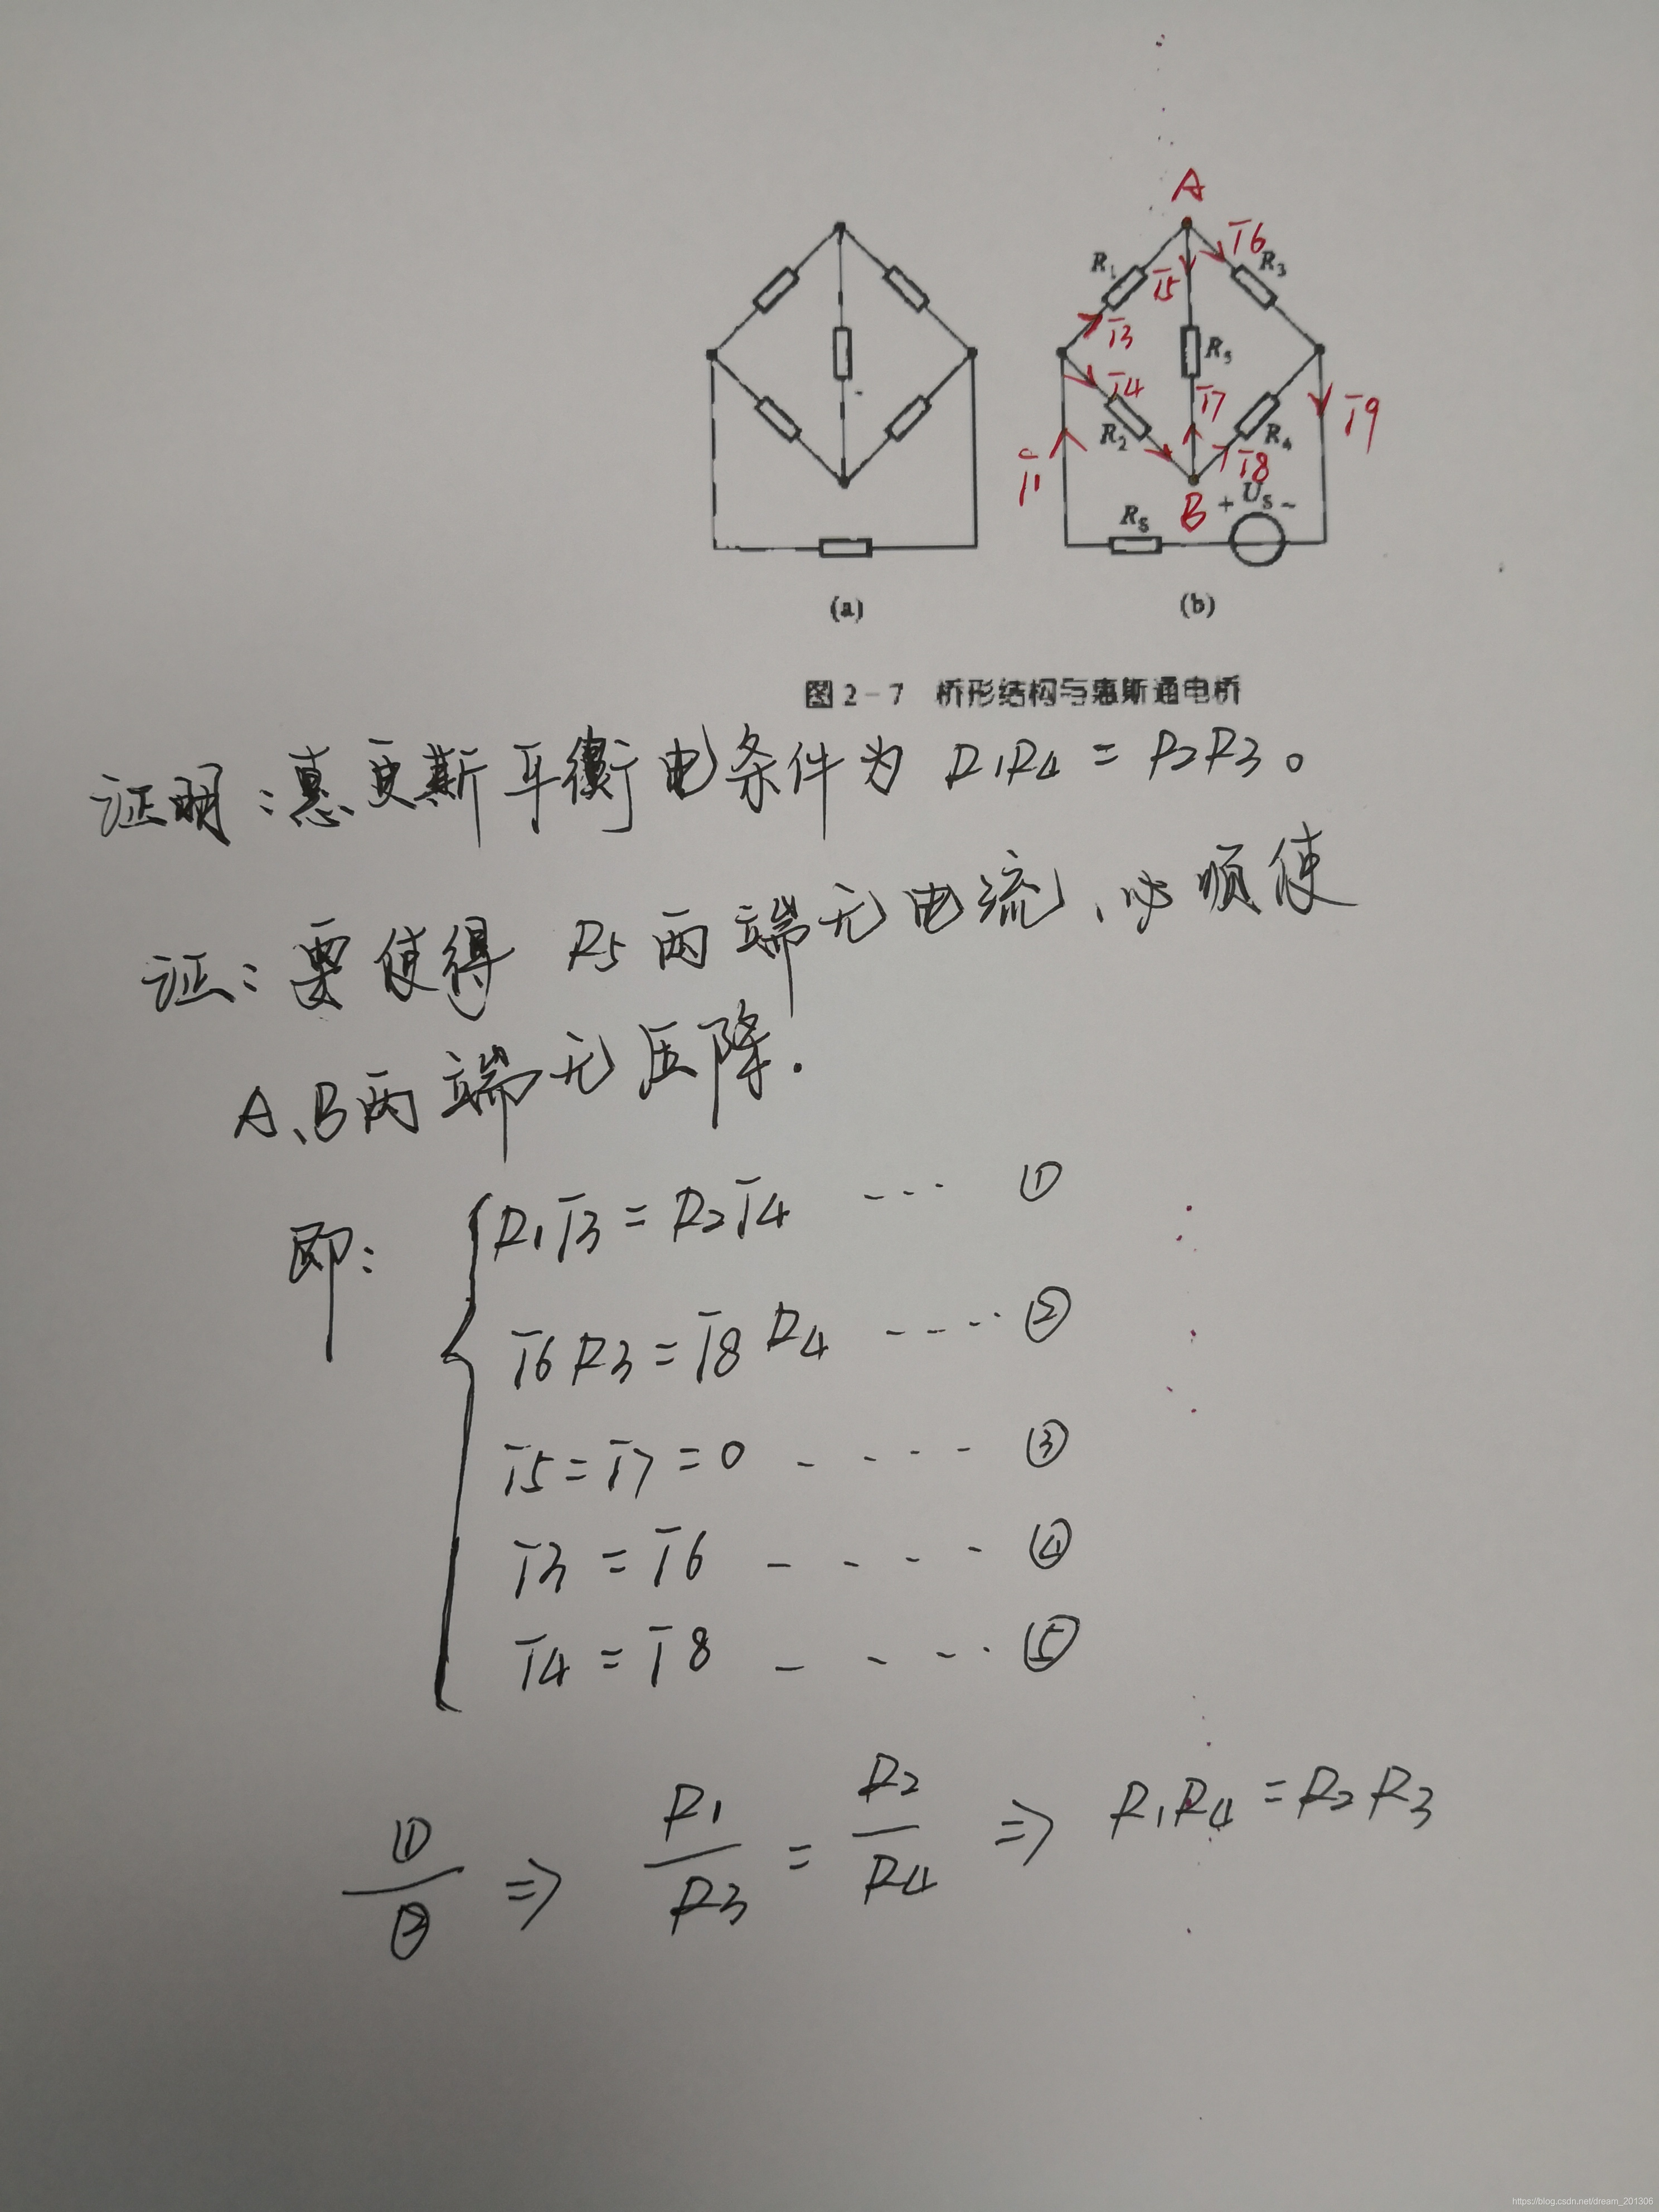 A
I6
R1
R3
I5
I3
R5
I4
I7
I9
R2
R4
I1
I8
B
+ US -
RS
(a)
(b)
图 2-7 桥形结构与惠斯通电桥
证明:惠更斯平衡电条件为 R1R4 = R2R3。
证:要使得 R5 两端无电流、必须使
A、B两端无压降.
即:
R1I3 = R2I4 --- ①
I6R3 = I8R4 ---- ②
I5 = I7 = 0 ----- ③
I3 = I6 ---- ④
I4 = I8 ---- ⑤
①/② ⇒ R1/R3 = R2/R4 ⇒ R1R4 = R2R3
https://blog.csdn.net/dream_201306